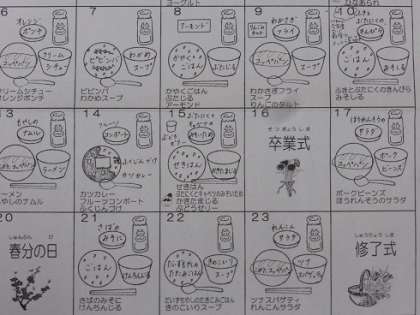 ヨーグルト
ひなあられ
6
7
8
9
10
オレンジ
ポンチ
クリーム
シチュー
コッペパン
ビビンバ
わかめ
スープ
アーモンド
かやく
ごはん
ぶたじる
わかさぎ
フライ
スープ
みそしる
クリームシチュー
オレンジポンチ
ビビンバ
わかめスープ
かやくごはん
ぶたじる
アーモンド
わかさぎフライ
スープ
りんごのタルト
ぶたにくのきんぴら
みそしる
13
14
15
16
17
もやしの
ナムル
ラーメン
フルーツ
コンポート
ふくじんづけ
カツカレー
せきはん
そつぎょうしき
卒業式
ほうれんそうの
サラダ
コッペパン
ポーク
ビーンズ
ラーメン
もやしのナムル
カツカレー
フルーツコンポート
ふくじんづけ
せきはん
かきたまじる
ぶどうゼリー
ポークビーンズ
ほうれんそうのサラダ
20
21
22
23
しゅんぶん ひ
春分の日
さばの
みそに
ごはん
けんちんじる
きのこいり
スープ
れんこん
サラダ
ツナ
スパゲティ
しゅうりょうしき
修了式
さばのみそに
けんちんじる
だいずいりわかめたきこみごはん
きのこいりスープ
ツナスパゲティ
れんこんサラダ